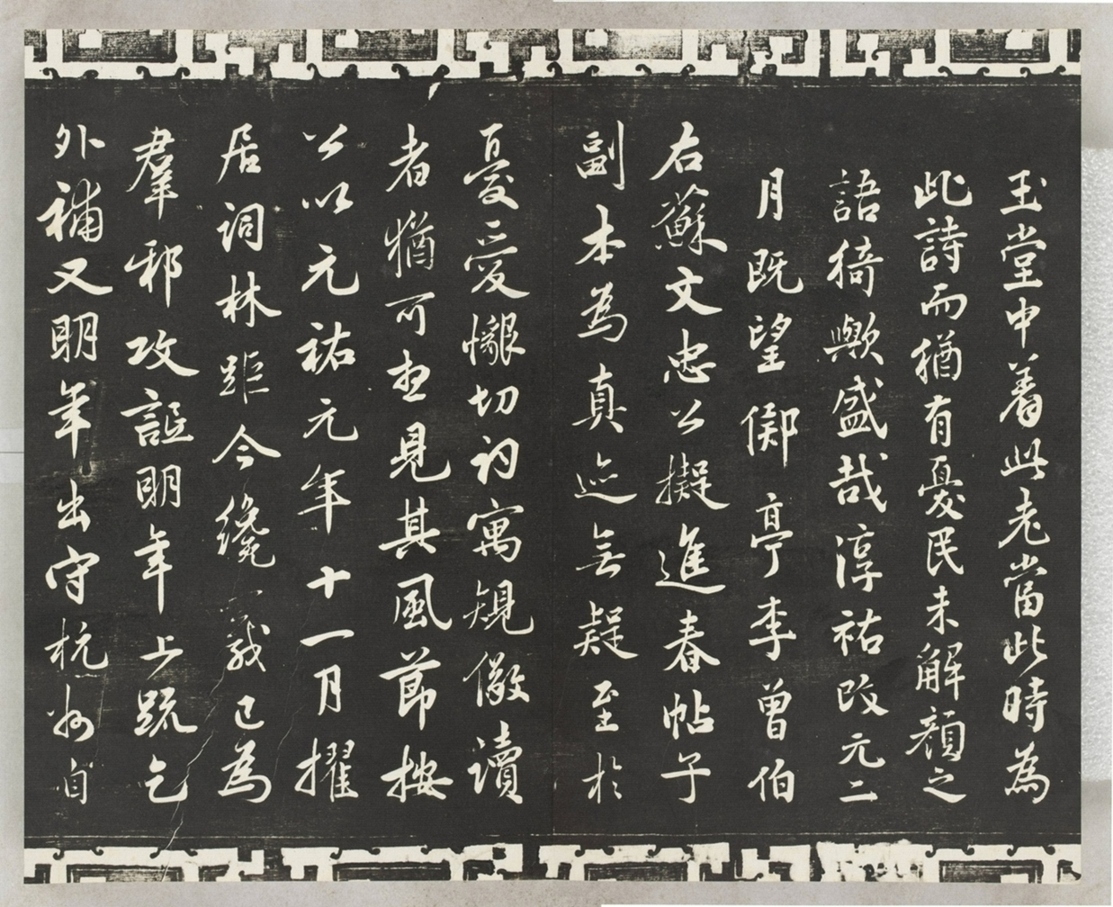 玉堂中着此老當此時為
此詩而猶有憂民未解顏之
語猗歟盛哉淳祐改元二
月既望鄊亭李曾伯
右蘇文忠公擬進春帖子
副本為真迹無疑至於
憂愛懇切初寓規儆讀
者猶可想見其風節按
公以元祐元年十一月擢
居詞林距今纔歲已為
羣邪攻詆明年上疏乞
外補又明年出守杭州自